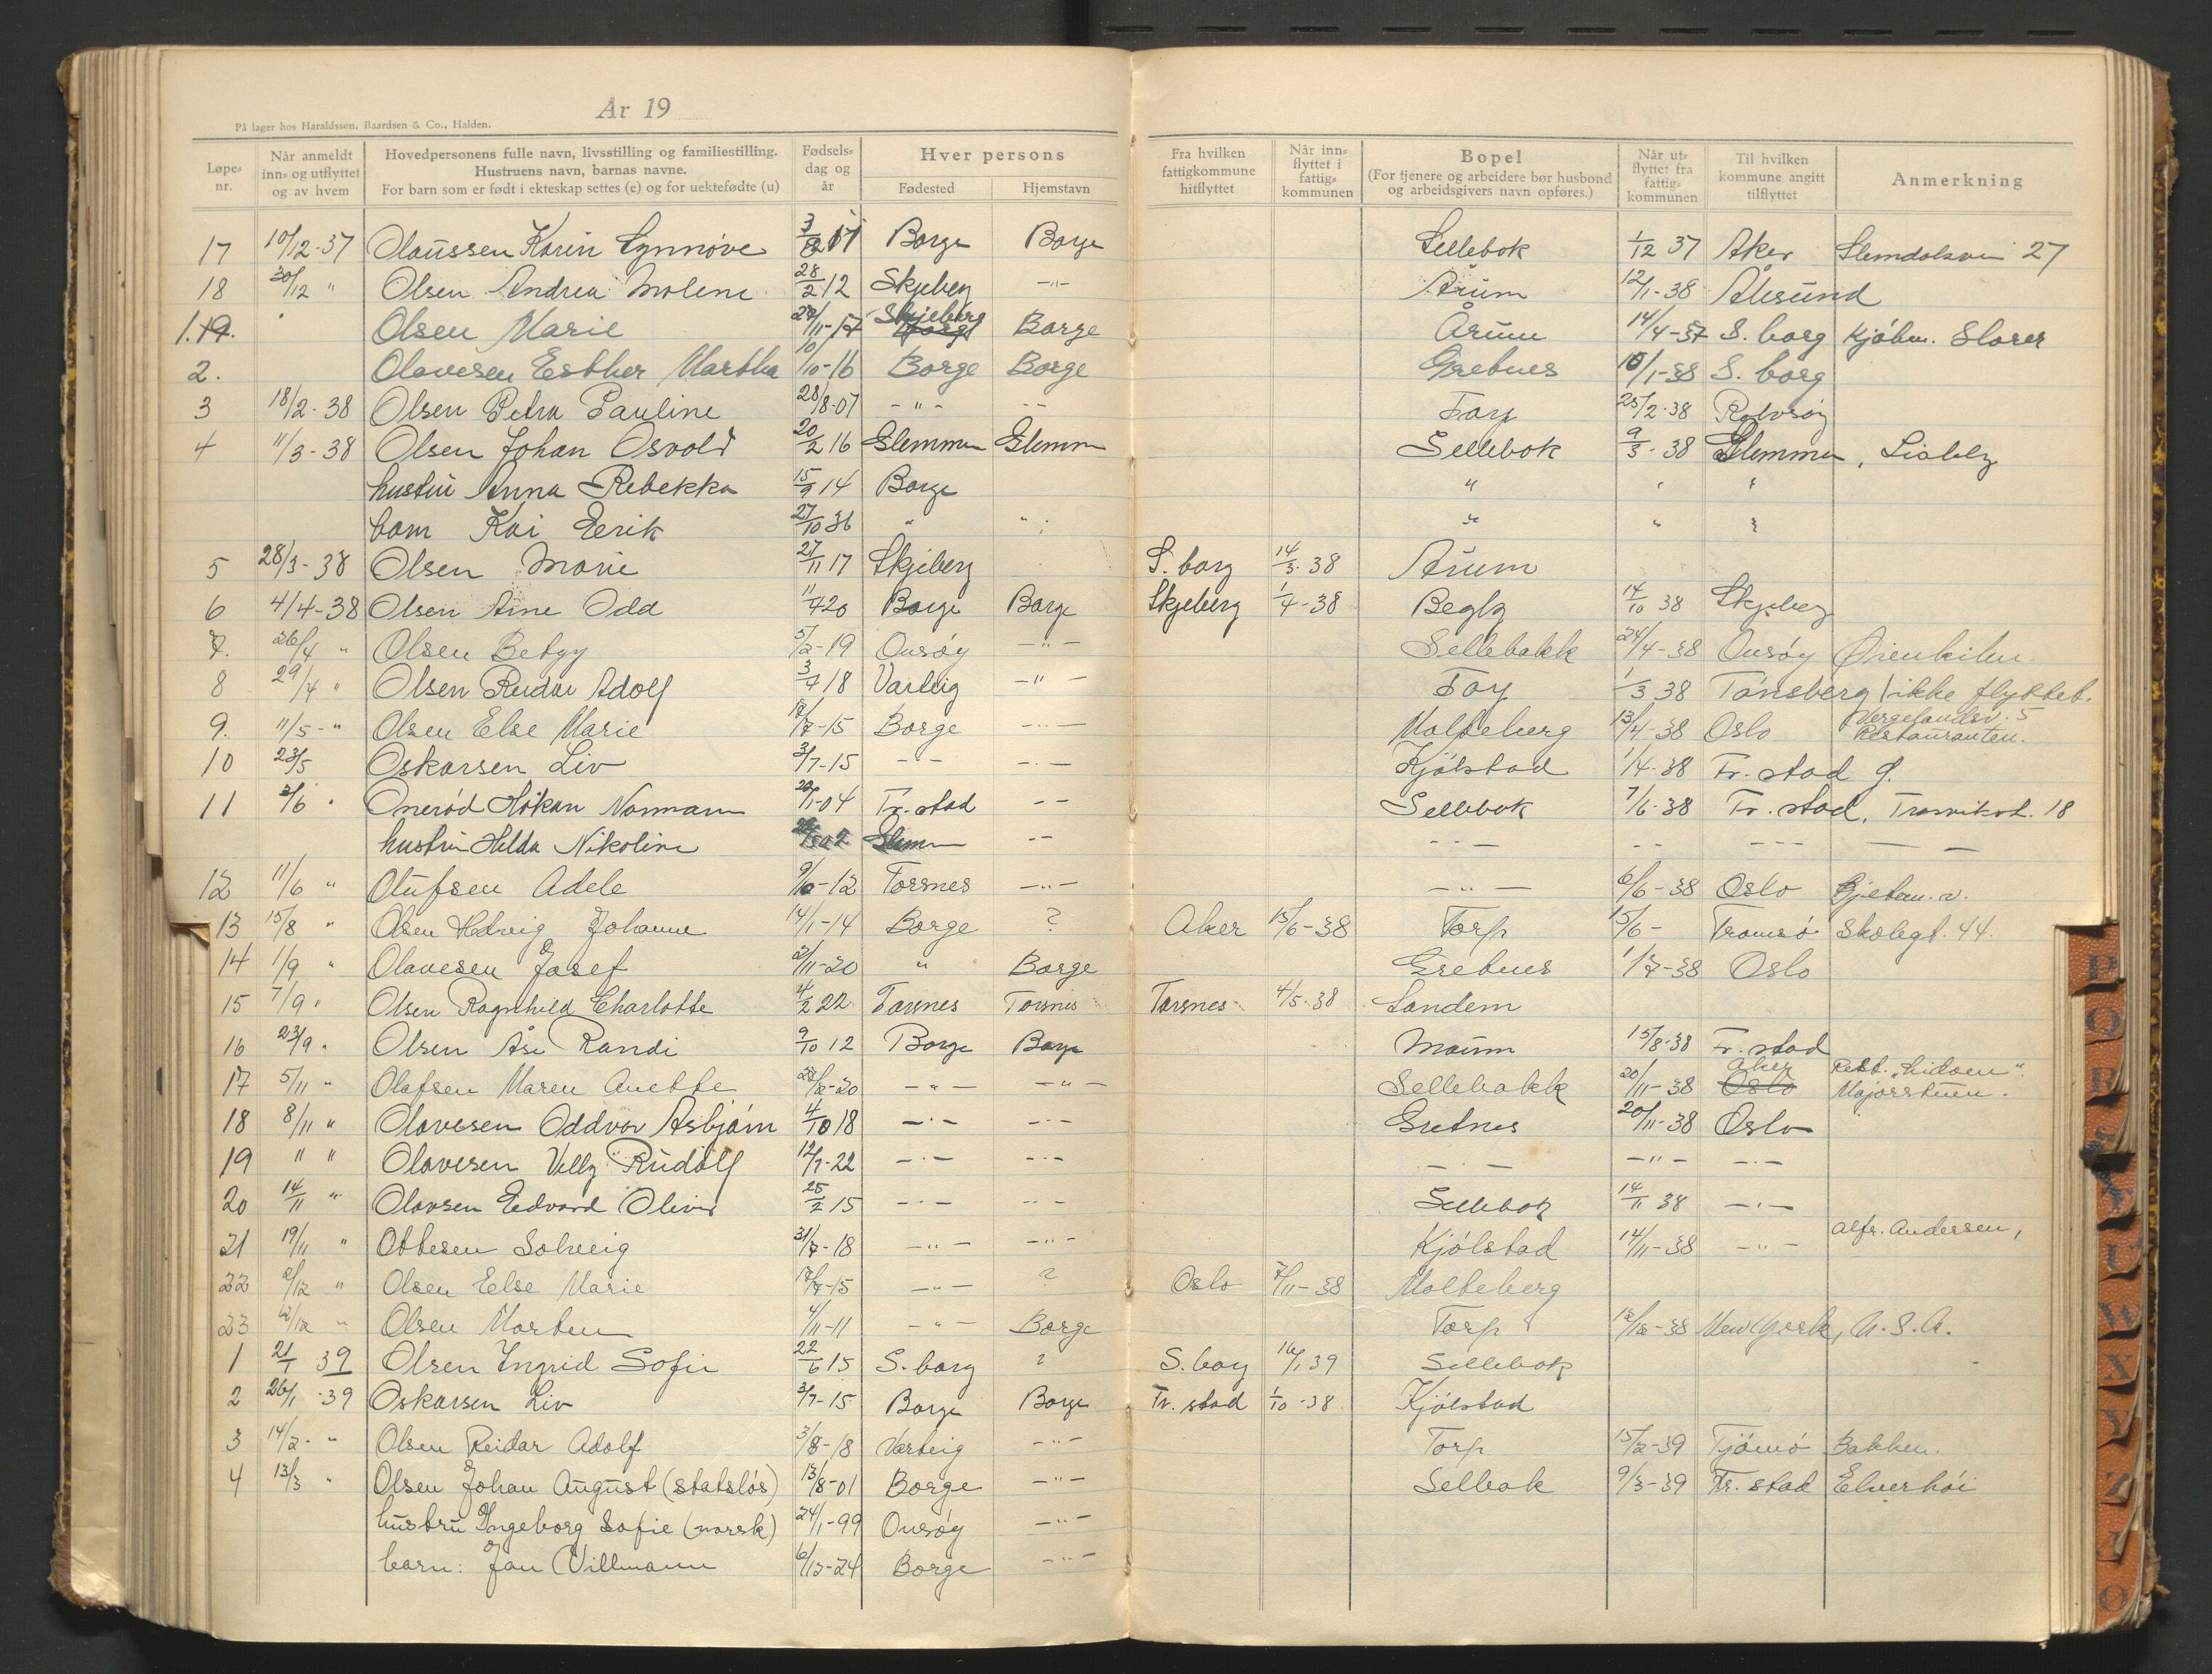 År 19
På lager hos Haraldssen, Baardsen & Co., Halden.
Løpe-nr. | Når anmeldt inn- og utflyttet og av hvem | Hovedpersonens fulle navn, livsstilling og familiestilling. Hustruens navn, barnas navne. For barn som er født i ekteskap settes (e) og for uektefødte (u) | Fødsels-dag og år | Hver persons Fødested | Hjemstavn | Fra hvilken fattigkommune hitflyttet | Når inn-flyttet i fattig-kommunen | Bopel (For tjenere og arbeidere bør husbond og arbeidsgivers navn opføres.) | Når ut-flyttet fra fattig-kommunen | Til hvilken kommune angitt tilflyttet | Anmerkning
17 10/12-37 Olaussen Karin Synnøve 3/12 17 Borge Borge Sellebok 1/12 37 Aker Slemdalsvn 27
18 30/12 " Olsen Andrea Molene 28/2 12 Skjeberg -"- Årum 12/1-38 Ålesund
1. 19. " Olsen Marie 27/11-17 Skjeberg Borge Borge Årum 14/4-37 S. borg Kjøbm. Storer
2. Olavesen Esther Martha 10/10-16 Borge Borge Grebnes 10/1-38 S. borg
3 18/2-38 Olsen Petra Pauline 28/8-07 -"- -- Torp 25/2-38 Rolvsøy
4 11/3-38 Olsen Johan Osvold 20/2 16 Glemmen Glemm Sellebok 9/3-38 Glemmen, Lisleby
hustru Anna Rebekka 15/9 14 Borge " " "
barn Kai Eerik 27/10 36 " " " " "
5 28/3-38 Olsen Marie 27/11 17 Skjeberg S. borg 14/3-38 Årum
6 4/4-38 Olsen Arne Odd 11/4 20 Borge Borge Skjeberg 1/4-38 Begby 14/10 38 Skjeberg
7. 26/4 " Olsen Betzy 5/2-19 Onsøy -"- Sellebakk 24/4-38 Onsøy Øienkilen.
8 29/4 " Olsen Reidar Adolf 3/7 18 Varteig -"- Torp 1/3 38 Tønsberg ikke flyttet.
9. 11/5-" Olsen Else Marie 17/7-15 Borge -"- Molteberg 13/4-38 Oslo Vergelandsv. 5 Restauranten.
10 23/5 Oskarsen Liv 3/7-15 -- -"- Kjølstad 1/4-38 Fr. stad g.
11 2/6 " Onerød Håkon Normann 20/1-04 Fr. stad -- Sellebok 7/6-38 Fr. stad, Trosvikst. 18
hustru Hilda Nikoline 02 Glemm -- --- -- --- — —
12 11/6 " Olufsen Adele 9/6-12 Torsnes -"- -"- 6/6-38 Oslo
13 15/8 " Olsen Hedvig Johanne 14/1-14 Borge ? Aker 15/6-38 Torp 15/6- Tromsø Skolegt. 44.
14 1/9 " Olavesen Josef 2/11-20 " Borge Grebnes 1/7-38 Oslo
15 7/9 " Olsen Ragnhild Charlotte 4/2 22 Torsnes Torsnes Torsnes 4/5-38 Sandem
16 23/9 " Olsen Åse Randi 9/10 12 Borge Borge Moum 15/8-38 Fr. stad
17 5/11 " Olafsen Maren Anette 22/2-20 -"- -"- Sellebakk 20/11-38 Aker Oslo Rest. "Lidoen" Majorstuen.
18 8/11 " Olavesen Oddvar Asbjørn 4/10 18 -"- -"- Gretnes 20/11-38 Oslo
19 " " Olavesen Villy Rudolf 12/7-22 -"- -"- -"- -"- -"-
20 14/11 " Olavsen Edvard Oliver 25/2 15 -"- -"- Sellebok 14/11 38 -"-
21 19/11 " Ottesen Solveig 31/7-18 -"- -"- Kjølstad 14/11-38 -"- Alfr. Andersen,
22 2/12 " Olsen Else Marie 17/7-15 -"- ? Oslo 7/11-38 Molteberg
23 12/12 " Olsen Morten 4/11-11 -"- Borge Torp 12/12-38 New York, U.S.A.
1 21/1 39 Olsen Ingrid Sofie 22/6 15 S. borg ? S. borg 16/1 39 Sellebok
2 26/1-39 Oskarsen Liv 3/7-15 Borge Borge Fr. stad 1/10-38 Kjølstad
3 14/2-" Olsen Reidar Adolf 3/8-18 Varteig -"- Torp 15/2-39 Tjømø Bakken.
4 13/3 " Olsen Johan August (statsløs) 13/8-01 Borge -"- Selbak 9/3-39 Fr. stad Elverhøi
hustru Ingeborg Sofie (norsk) 24/1-99 Onsøy -"-
barn: Jan Villmann 6/12-24 Borge -"-
U
W
X
Y
Z
Ø